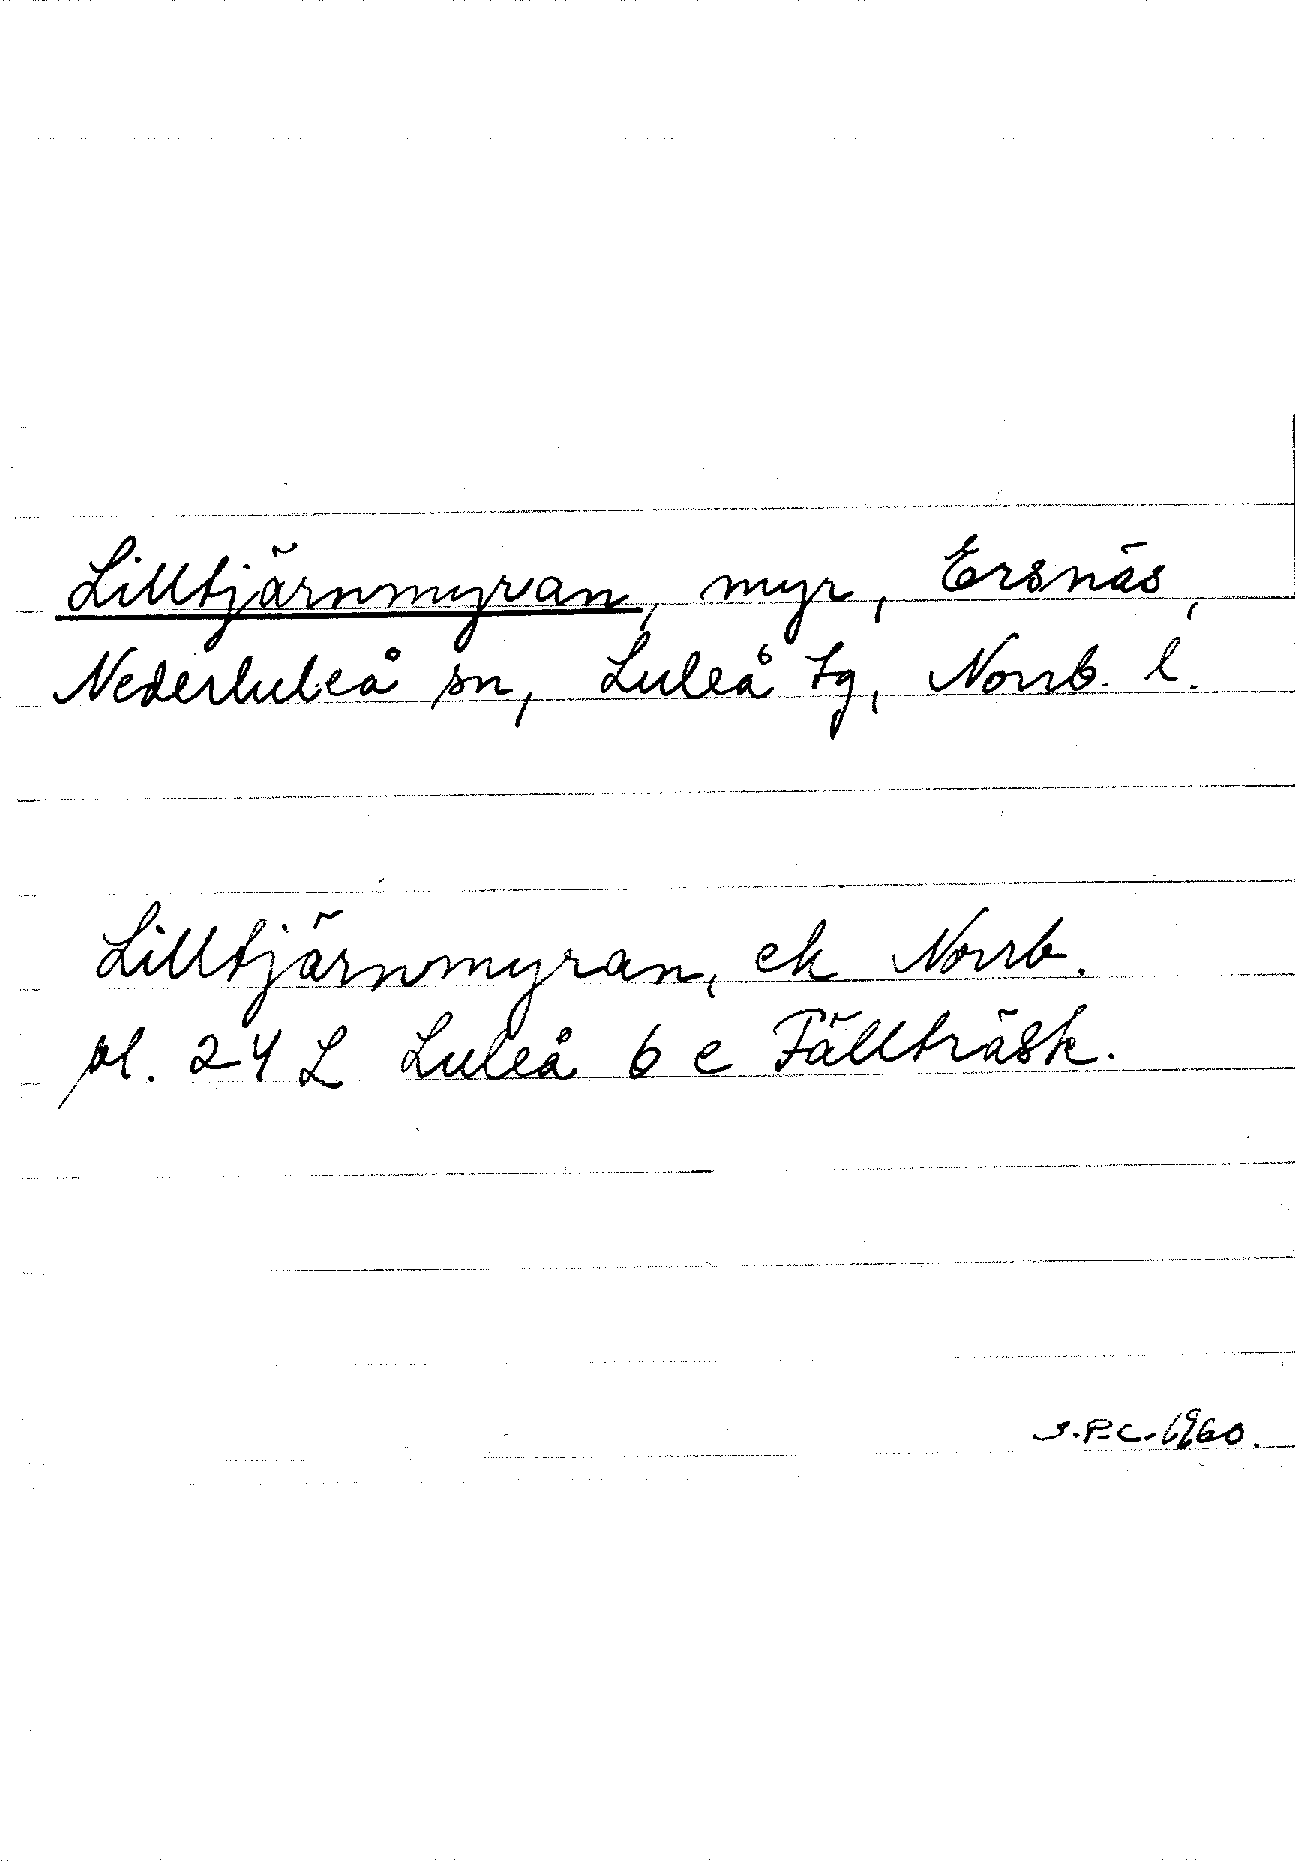 Lilltjärnmyran, myr, Ersnäs,
Nederluleå sn, Luleå tg, Norrb. l.
Lilltjärnmyran, ek Norrb.
bl. 24 L Luleå 6 e Fällträsk.
S.P.C. 1960.